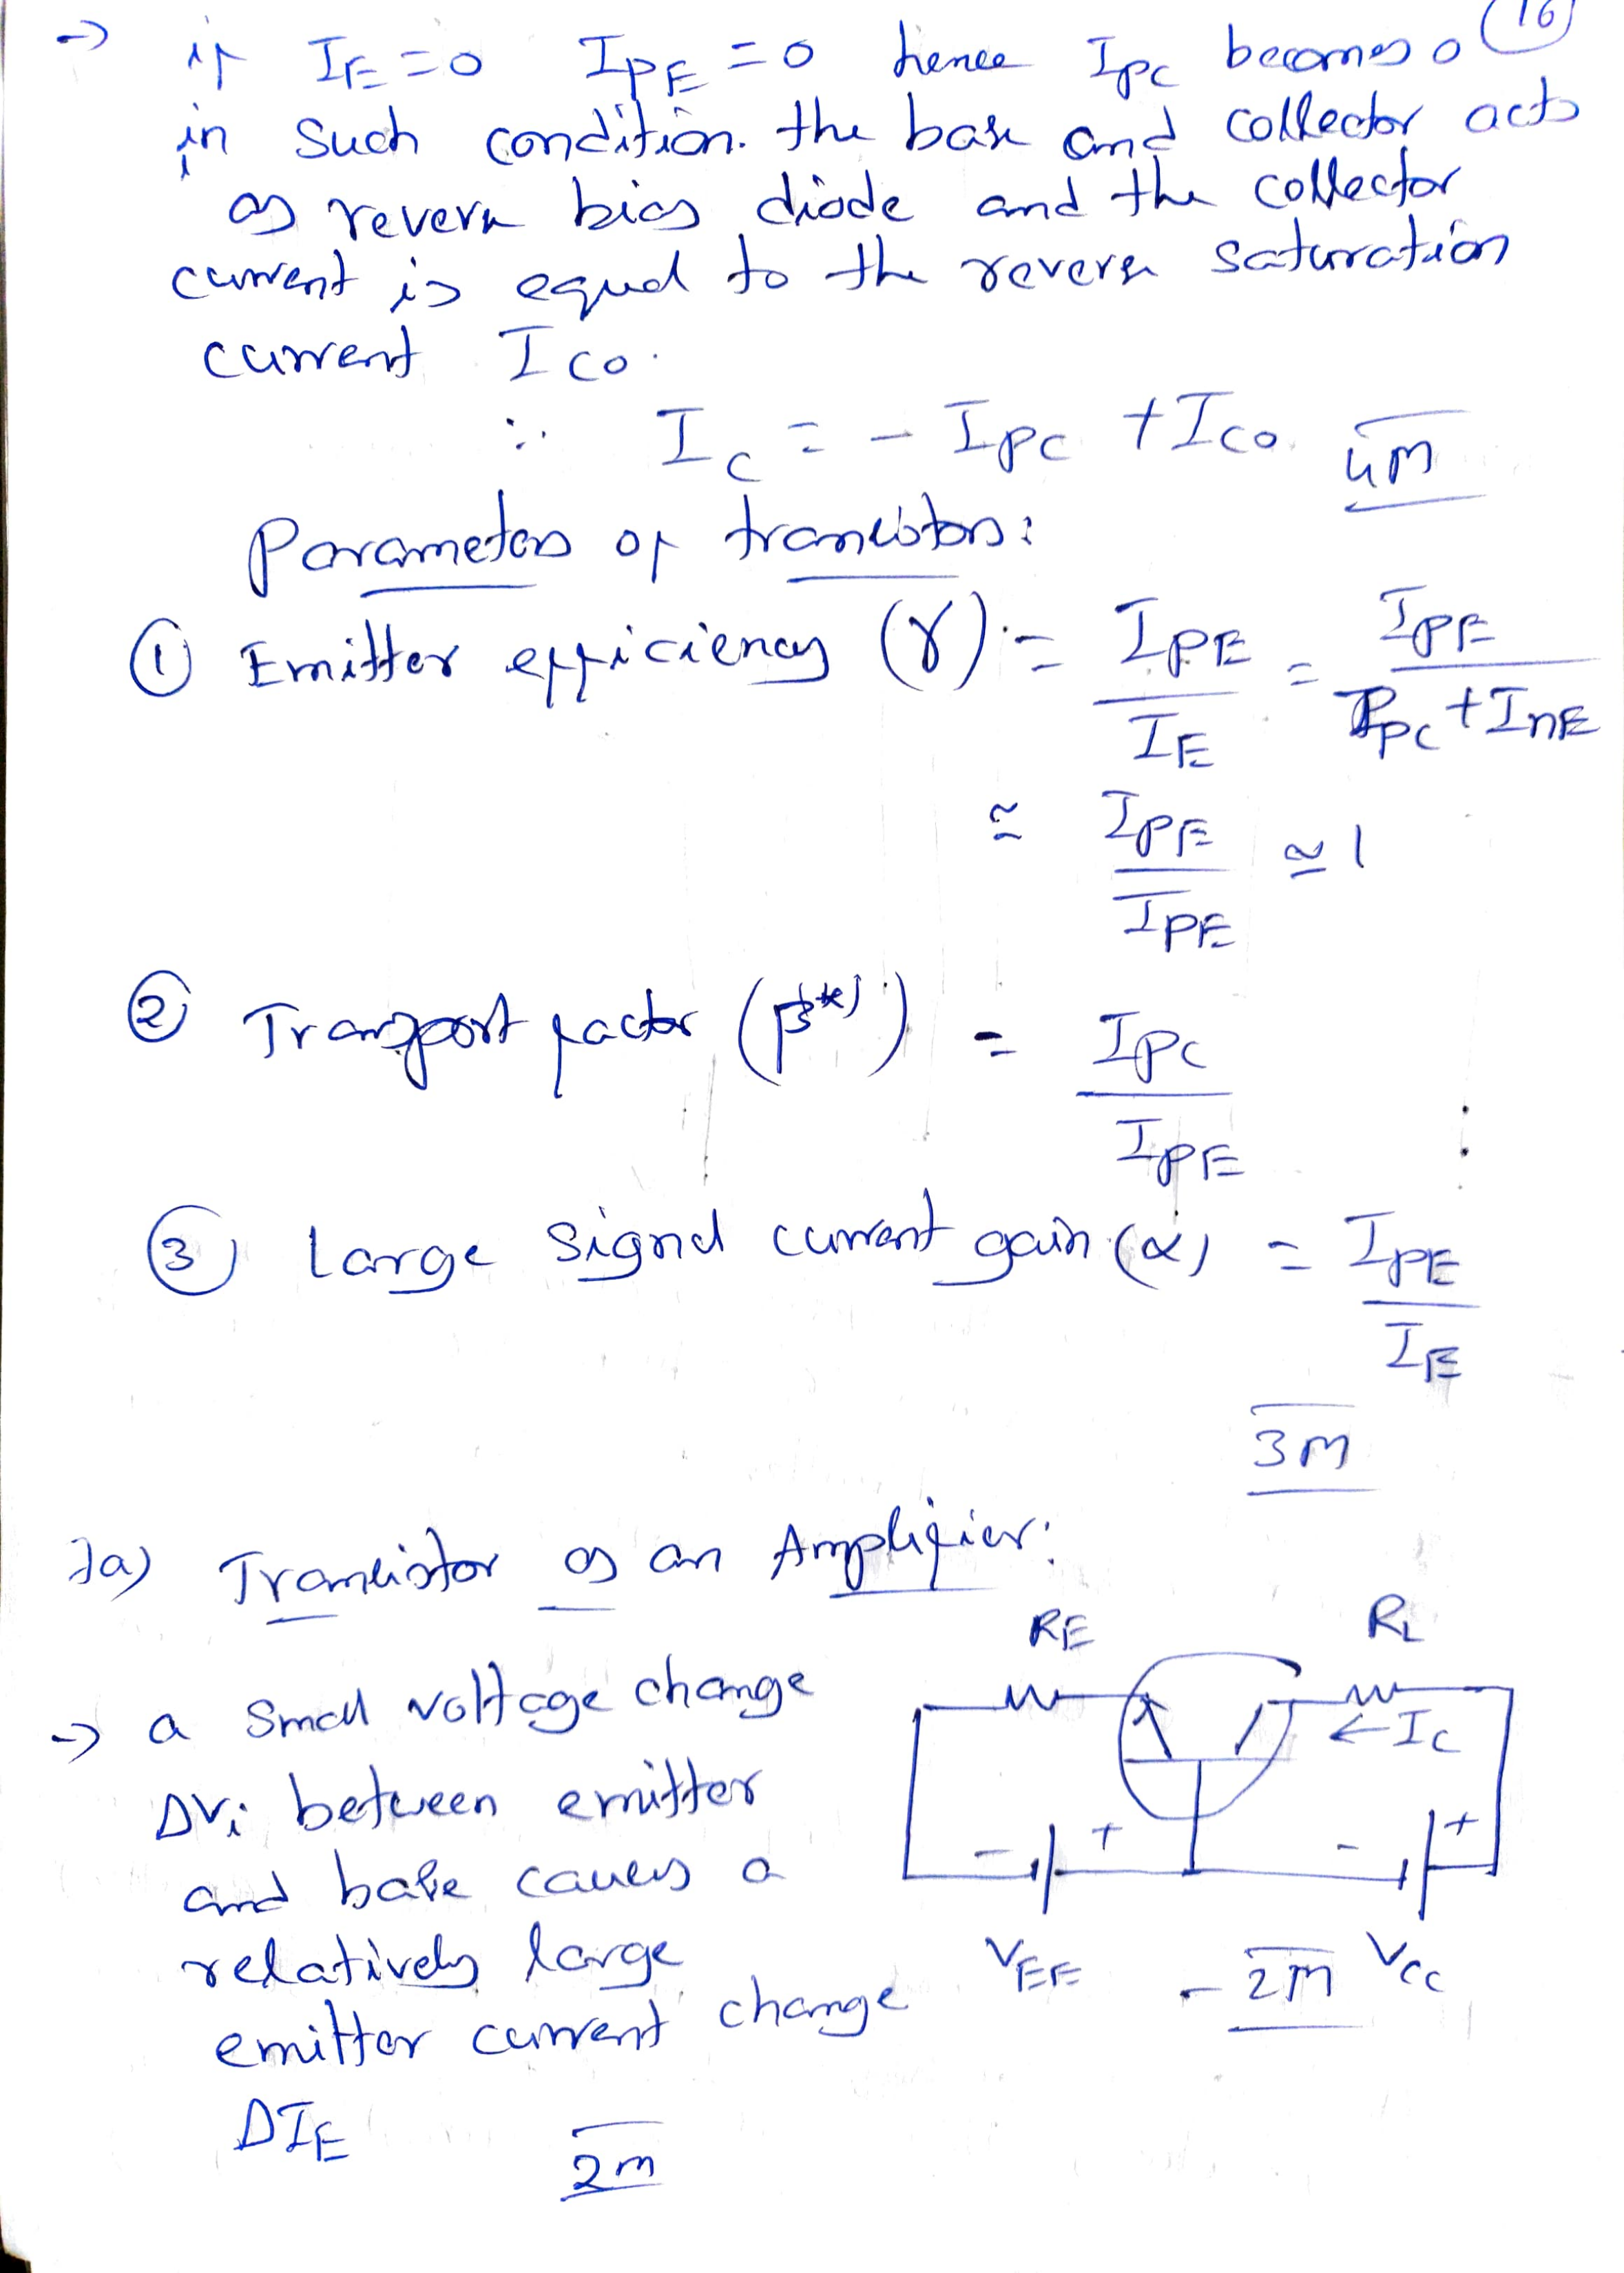 16
→ if IE = 0 IPE = 0 hence IPC becomes 0
in such condition. the base and collector acts
as reverse bias diode and the collector
current is equal to the reverse saturation
current ICO.
∴ IC = - IPC + ICO 4M
Parameters of transistors:
① Emitter efficiency (γ) = IPE / IE = IPE / IPC + InE
≃ IPE / IPE ≃ 1
② Transport factor (β*) = IPC / IPE
③ Large signal current gain (α) = IPE / IE
3M
7a) Transistor as an Amplifier:
RE RL
→ a small voltage change
← IC
ΔVi between emitter
- + - +
and base causes a
relatively large
VEE - 2M VCC
emitter current change
ΔIE
2m